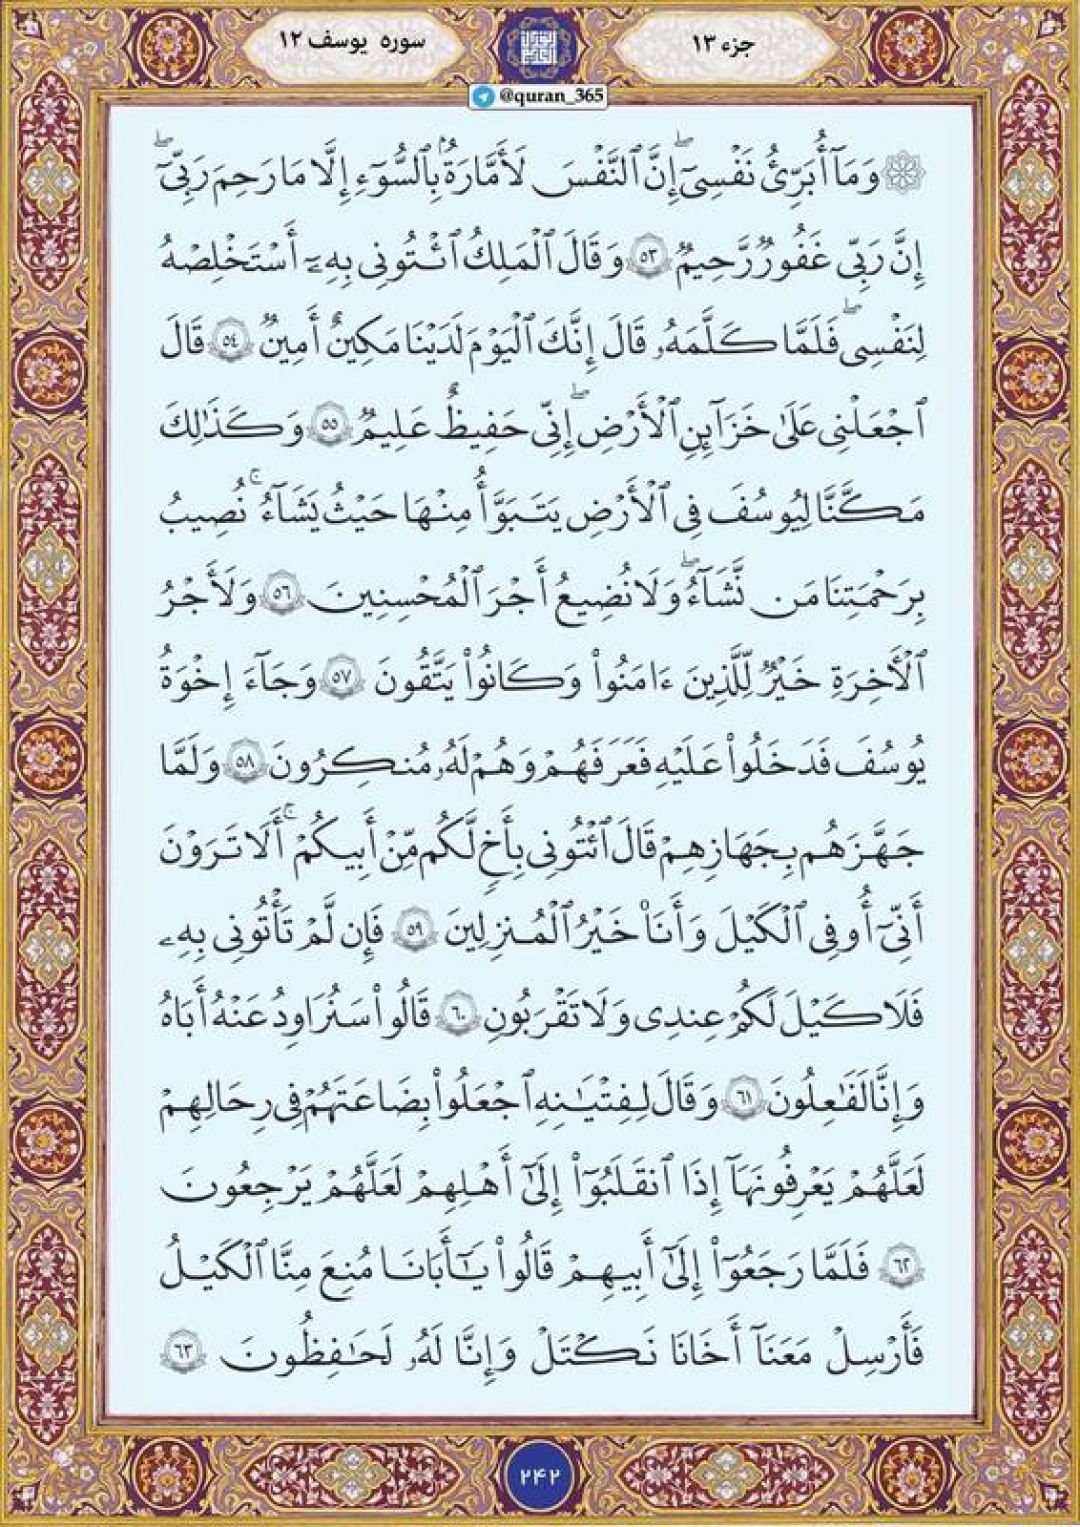 جزء ۱۳
سوره یوسف ۱۲
@quran_365
۞ وَمَآ أُبَرِّئُ نَفْسِىٓ ۖ إِنَّ ٱلنَّفْسَ لَأَمَّارَةٌۢ بِٱلسُّوٓءِ إِلَّا مَا رَحِمَ رَبِّىٓ ۖ
إِنَّ رَبِّى غَفُورٌ رَّحِيمٌ ۝٥٣ وَقَالَ ٱلْمَلِكُ ٱئْتُونِى بِهِۦٓ أَسْتَخْلِصْهُ
لِنَفْسِى ۖ فَلَمَّا كَلَّمَهُۥ قَالَ إِنَّكَ ٱلْيَوْمَ لَدَيْنَا مَكِينٌ أَمِينٌ ۝٥٤ قَالَ
ٱجْعَلْنِى عَلَىٰ خَزَآئِنِ ٱلْأَرْضِ ۖ إِنِّى حَفِيظٌ عَلِيمٌ ۝٥٥ وَكَذَٰلِكَ
مَكَّنَّا لِيُوسُفَ فِى ٱلْأَرْضِ يَتَبَوَّأُ مِنْهَا حَيْثُ يَشَآءُ ۚ نُصِيبُ
بِرَحْمَتِنَا مَن نَّشَآءُ ۖ وَلَا نُضِيعُ أَجْرَ ٱلْمُحْسِنِينَ ۝٥٦ وَلَأَجْرُ
ٱلْـَٔاخِرَةِ خَيْرٌ لِّلَّذِينَ ءَامَنُوا۟ وَكَانُوا۟ يَتَّقُونَ ۝٥٧ وَجَآءَ إِخْوَةُ
يُوسُفَ فَدَخَلُوا۟ عَلَيْهِ فَعَرَفَهُمْ وَهُمْ لَهُۥ مُنكِرُونَ ۝٥٨ وَلَمَّا
جَهَّزَهُم بِجَهَازِهِمْ قَالَ ٱئْتُونِى بِأَخٍ لَّكُم مِّنْ أَبِيكُمْ ۚ أَلَا تَرَوْنَ
أَنِّىٓ أُوفِى ٱلْكَيْلَ وَأَنَا۠ خَيْرُ ٱلْمُنزِلِينَ ۝٥٩ فَإِن لَّمْ تَأْتُونِى بِهِۦ
فَلَا كَيْلَ لَكُمْ عِندِى وَلَا تَقْرَبُونِ ۝٦٠ قَالُوا۟ سَنُرَٰوِدُ عَنْهُ أَبَاهُ
وَإِنَّا لَفَـٰعِلُونَ ۝٦١ وَقَالَ لِفِتْيَـٰنِهِ ٱجْعَلُوا۟ بِضَـٰعَتَهُمْ فِى رِحَالِهِمْ
لَعَلَّهُمْ يَعْرِفُونَهَآ إِذَا ٱنقَلَبُوٓا۟ إِلَىٰٓ أَهْلِهِمْ لَعَلَّهُمْ يَرْجِعُونَ
۝٦٢ فَلَمَّا رَجَعُوٓا۟ إِلَىٰٓ أَبِيهِمْ قَالُوا۟ يَـٰٓأَبَانَا مُنِعَ مِنَّا ٱلْكَيْلُ
فَأَرْسِلْ مَعَنَآ أَخَانَا نَكْتَلْ وَإِنَّا لَهُۥ لَحَـٰفِظُونَ ۝٦٣
۲۴۲